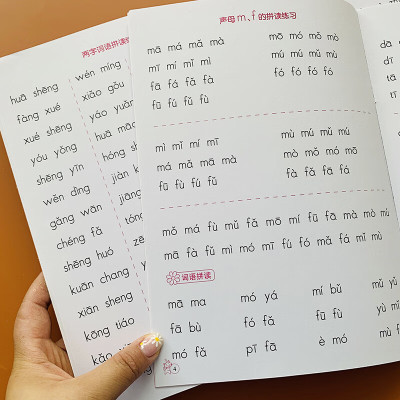 两字词语拼读
huā shēng wén míng
fàng xué xiǎo gǒu
xué shēng yáo yuǎn
yóu yǒng huā
shēng yīn hóng
wén dīng jiàn
gāng wān jiàn
chéng fǎ tíng
shēng huó
kuān chang
xiān sheng
kōng tiáo
声母 m、f 的拼读练习
mā má mǎ mà mō mó mǒ mò
mī mí mǐ mì mū mú mǔ mù
fā fá fǎ fà fó fó fó fó
fū fú fǔ fù
mì mǐ mí mī mù mú mǔ mū
má mǎ mā mà mò mǒ mó mō
fū fù fú fǔ fà fǎ fā fá
mǒ má fù mǔ fǎ mō mí fū fā mà mò mù
mā fà fǔ mì mó mī fú fó mǎ fá mǐ mú
词语拼读
mā ma mó yá mí bǔ
fā bù fó fǎ fù fū
mó fǎ pī fā è mó
4